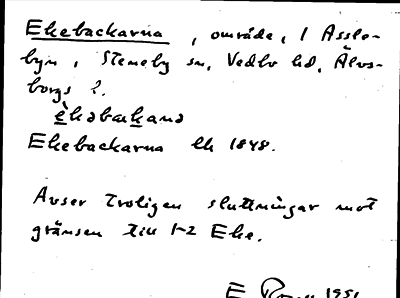 Ekebackarna, område, i Assle-
byn, Steneby sn, Vedbo hd, Älvs-
borgs l.
èkəbakana
Ekebackarna lk 1848.
Avser troligen sluttningar mot
gränsen till 1-2 Eke.
E 1951